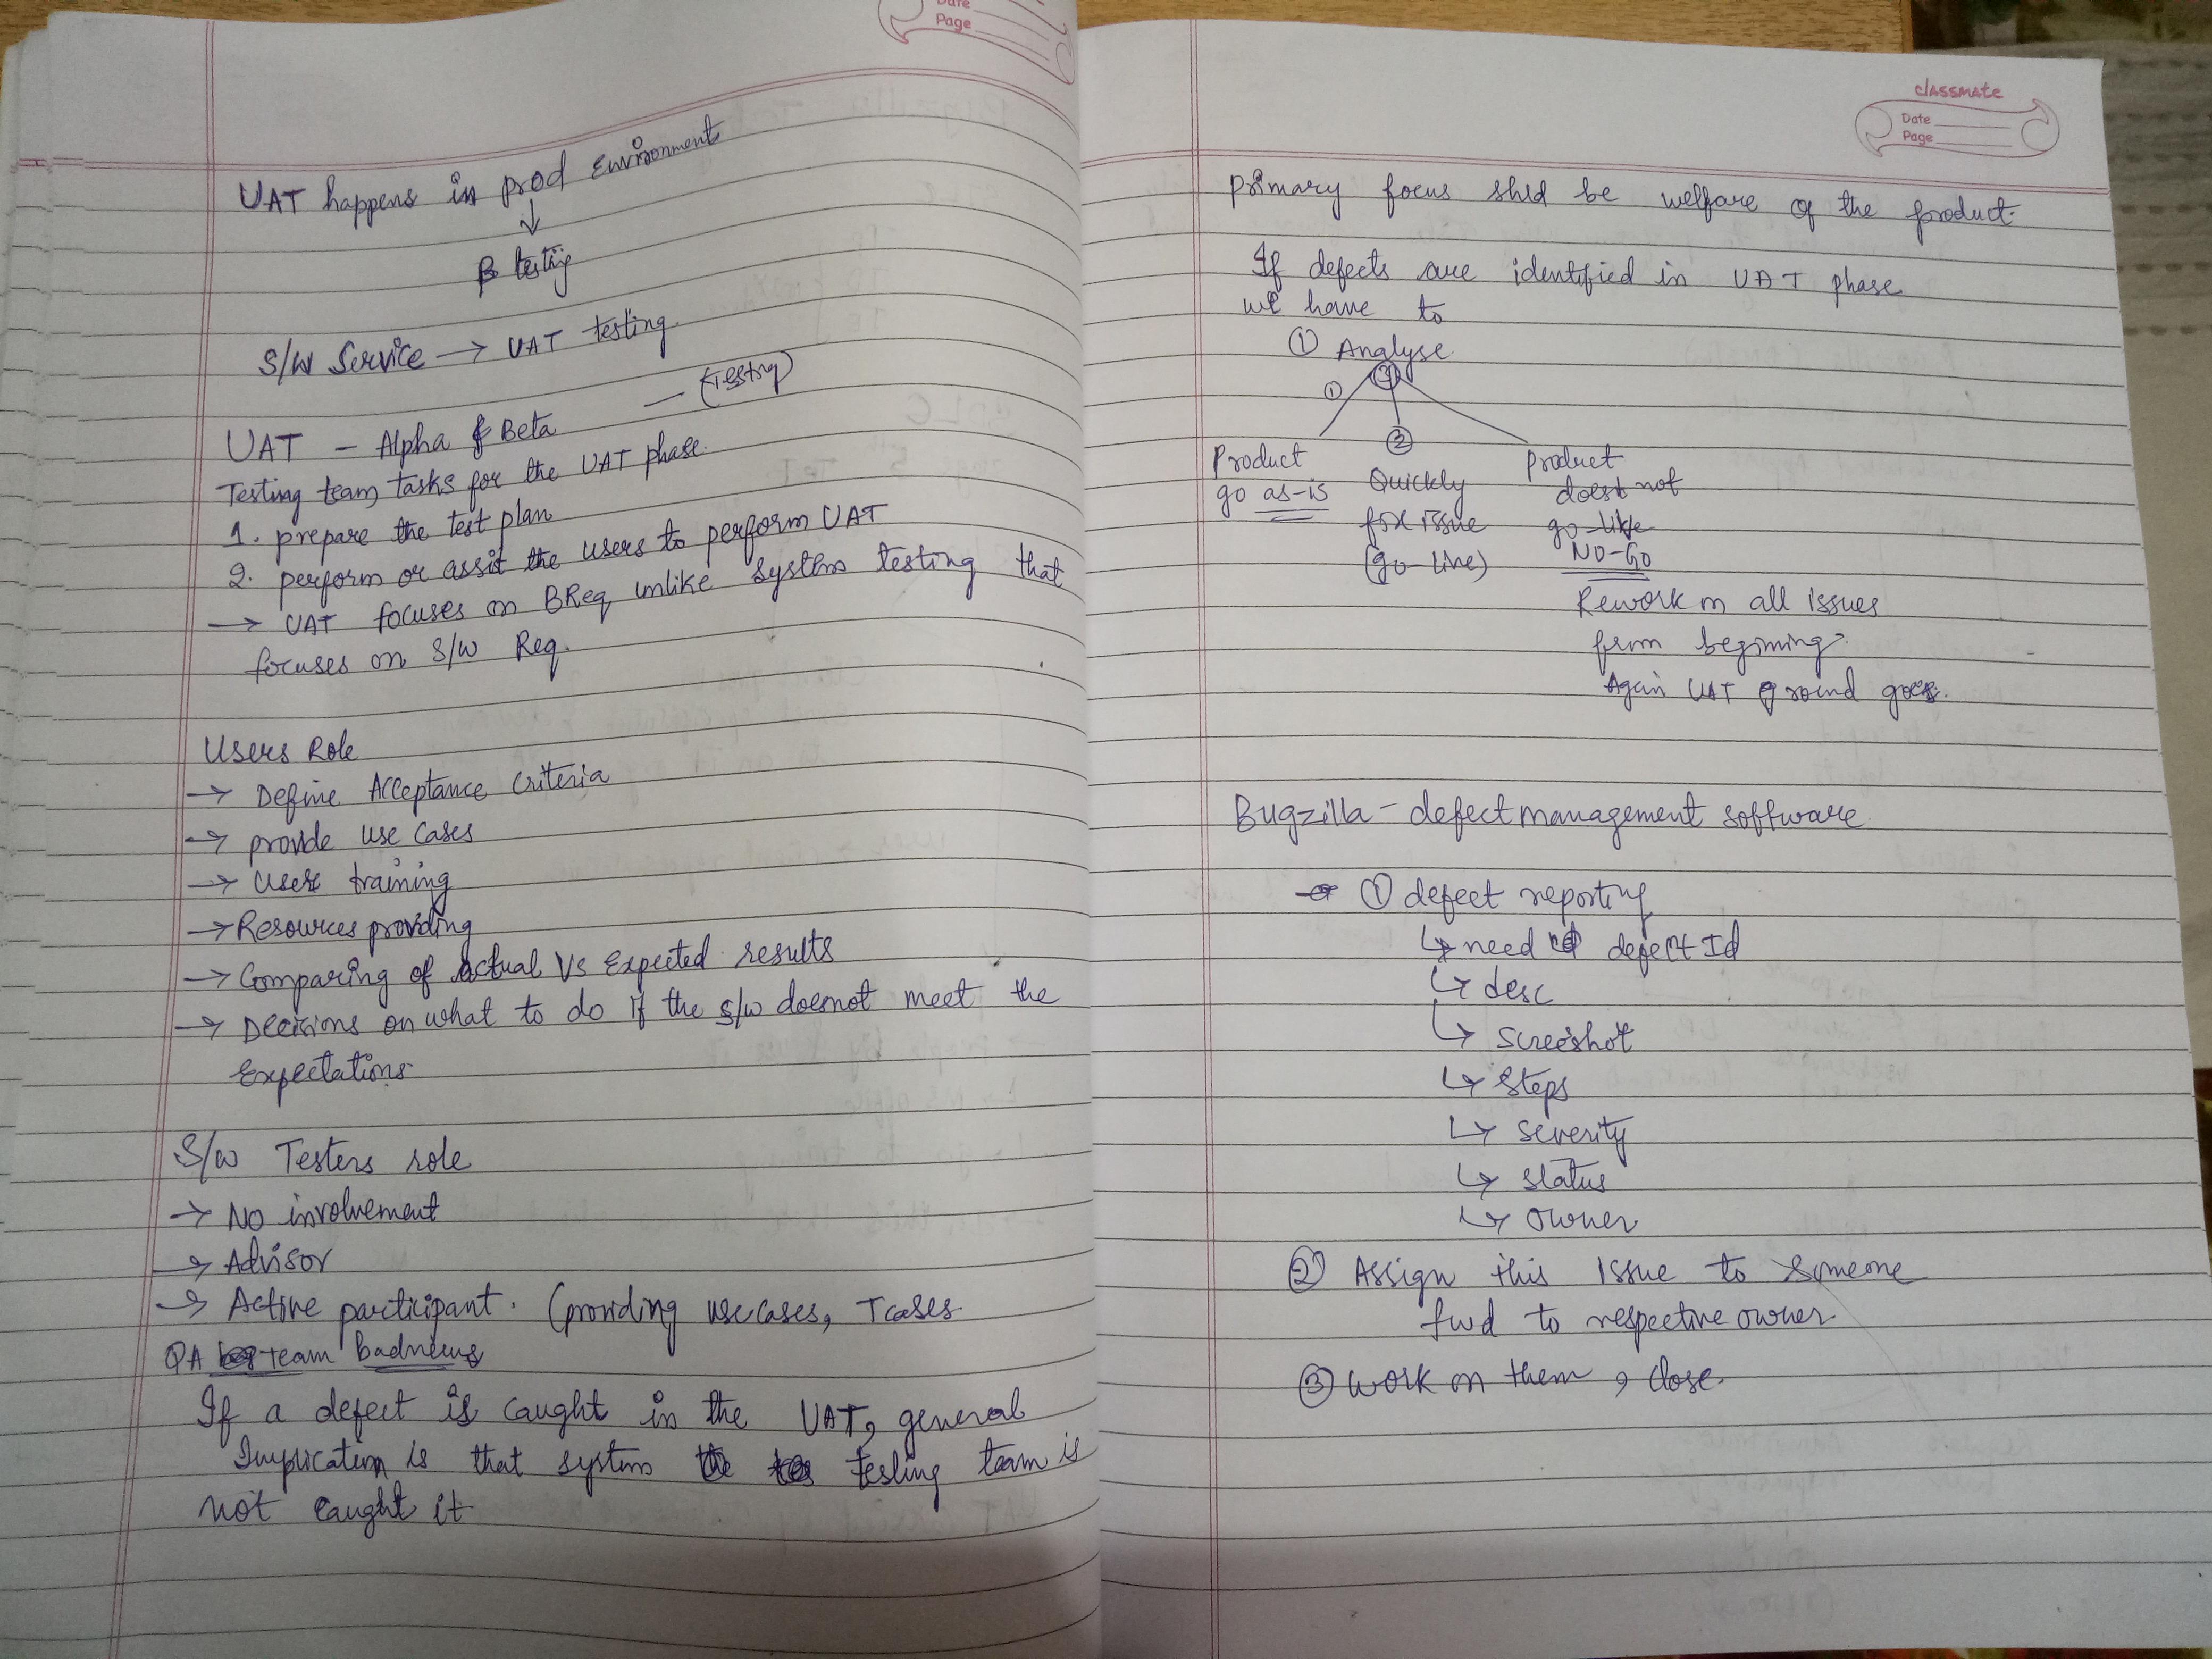 Date
Page
UAT happens in prod Environment
↓
B testig
S/W Service → UAT testing.
UAT - Alpha & Beta - (Testing)
Testing team tasks for the UAT phase.
1. prepare the test plan
2. perform or assit the users to perform UAT
→ UAT focuses on BReq unlike system testing that
focuses on S/W Req.
Users Role
→ Define Acceptance Criteria
→ provide use cases
→ Users training
→ Resources providing
→ Comparing of actual Vs Expected results
→ Decisions on what to do if the s/w doesnot meet the
Expectations
S/W Testers role
→ No involvement
→ Advisor
→ Active participant. (providing usecases, Tcases
QA team badnews
If a defect is caught in the UAT, general
Implication is that system testing team is
not caught it
classmate
Date
Page
Primary focus shld be welfare of the product.
If defects are identified in UAT phase
we have to
① Analyse.
①
②
Product
go as-is
Quickly
fix issue
(go-live)
product
does not
go-live
NO-GO
Rework on all issues
from begining.
Again UAT round goes.
Bugzilla - defect management software
① defect reporting
↳ need defect Id
↳ desc
↳ screeshot
↳ steps
↳ severity
↳ status
↳ owner
② Assign this issue to someone
fwd to respective owner.
③ work on them, close.